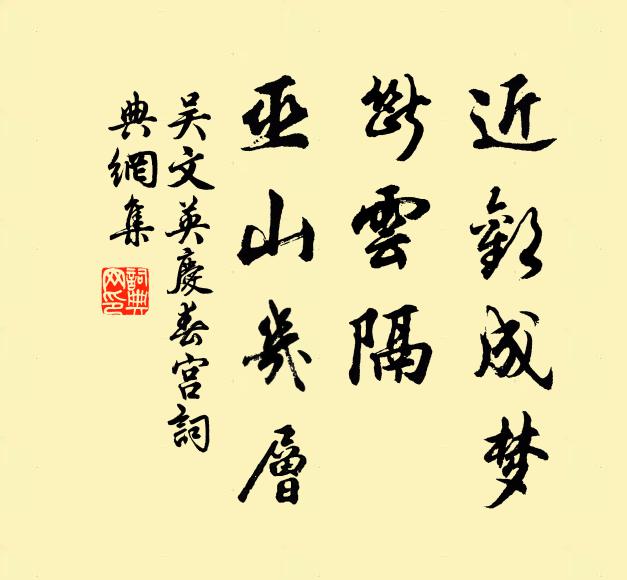 近歡成梦
斷雲隔
巫山幾層
吴文英慶春宮詞
典網集
詞典网印